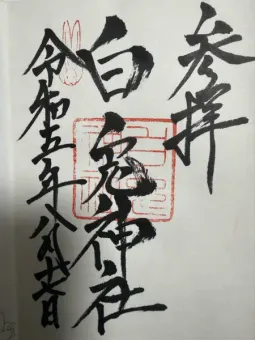 参拝
白兔神社
令和五年八月廿七日